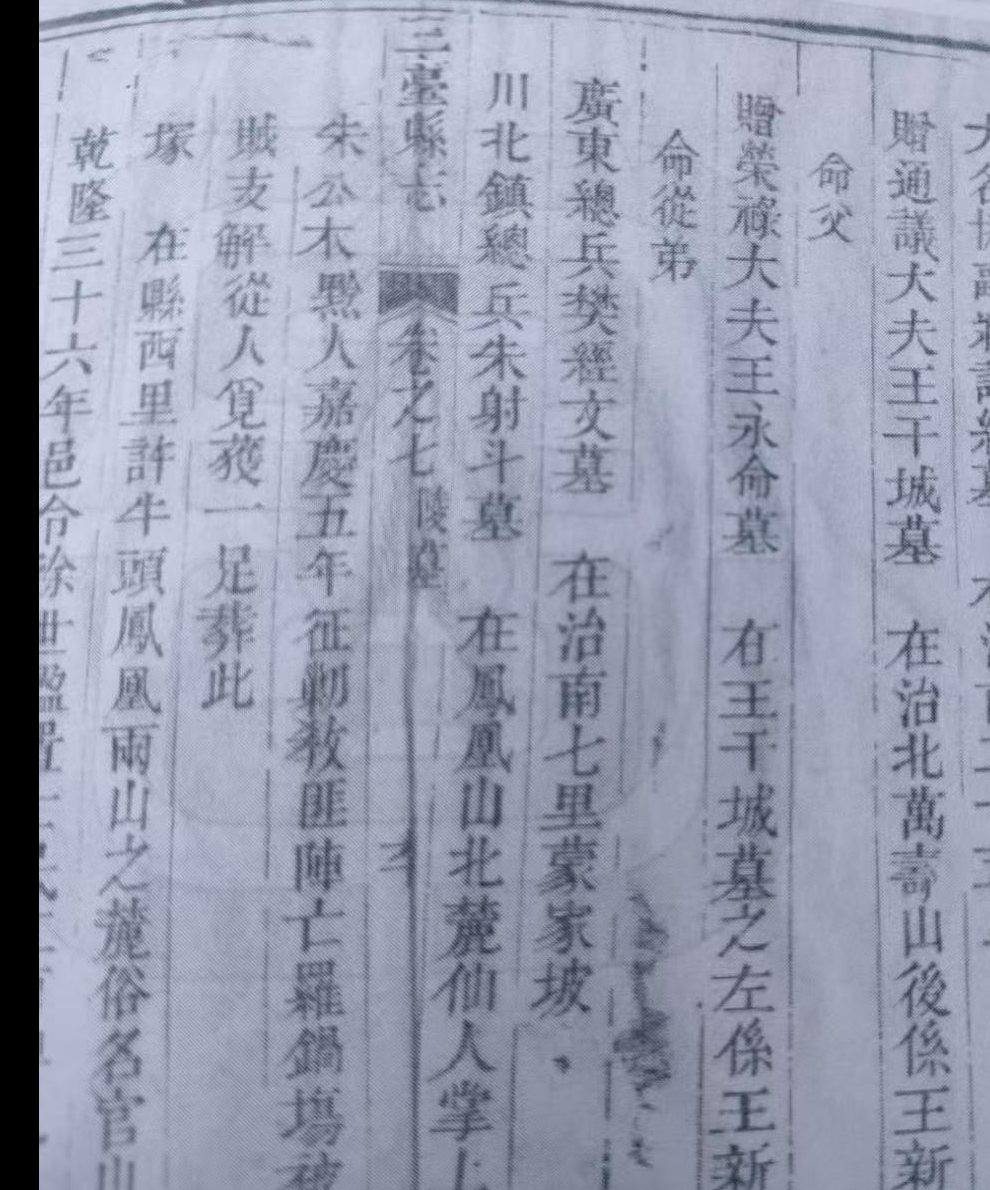 贈通議大夫王干城墓　在治北萬壽山後係王新
命父
贈榮祿大夫王永命墓　在王干城墓之左係王新
命從弟
廣東總兵樊經文墓　在治南七里蒙家坡
川北鎮總兵朱射斗墓　在鳳凰山北麓仙人掌上
三臺縣志　卷之七　陵墓
朱公本黔人嘉慶五年征勦教匪陣亡羅鍋塲被
賊支解從人覓獲一足葬此
塚　在縣西里許牛頭鳳凰兩山之麓俗名官山
乾隆三十六年邑令徐世